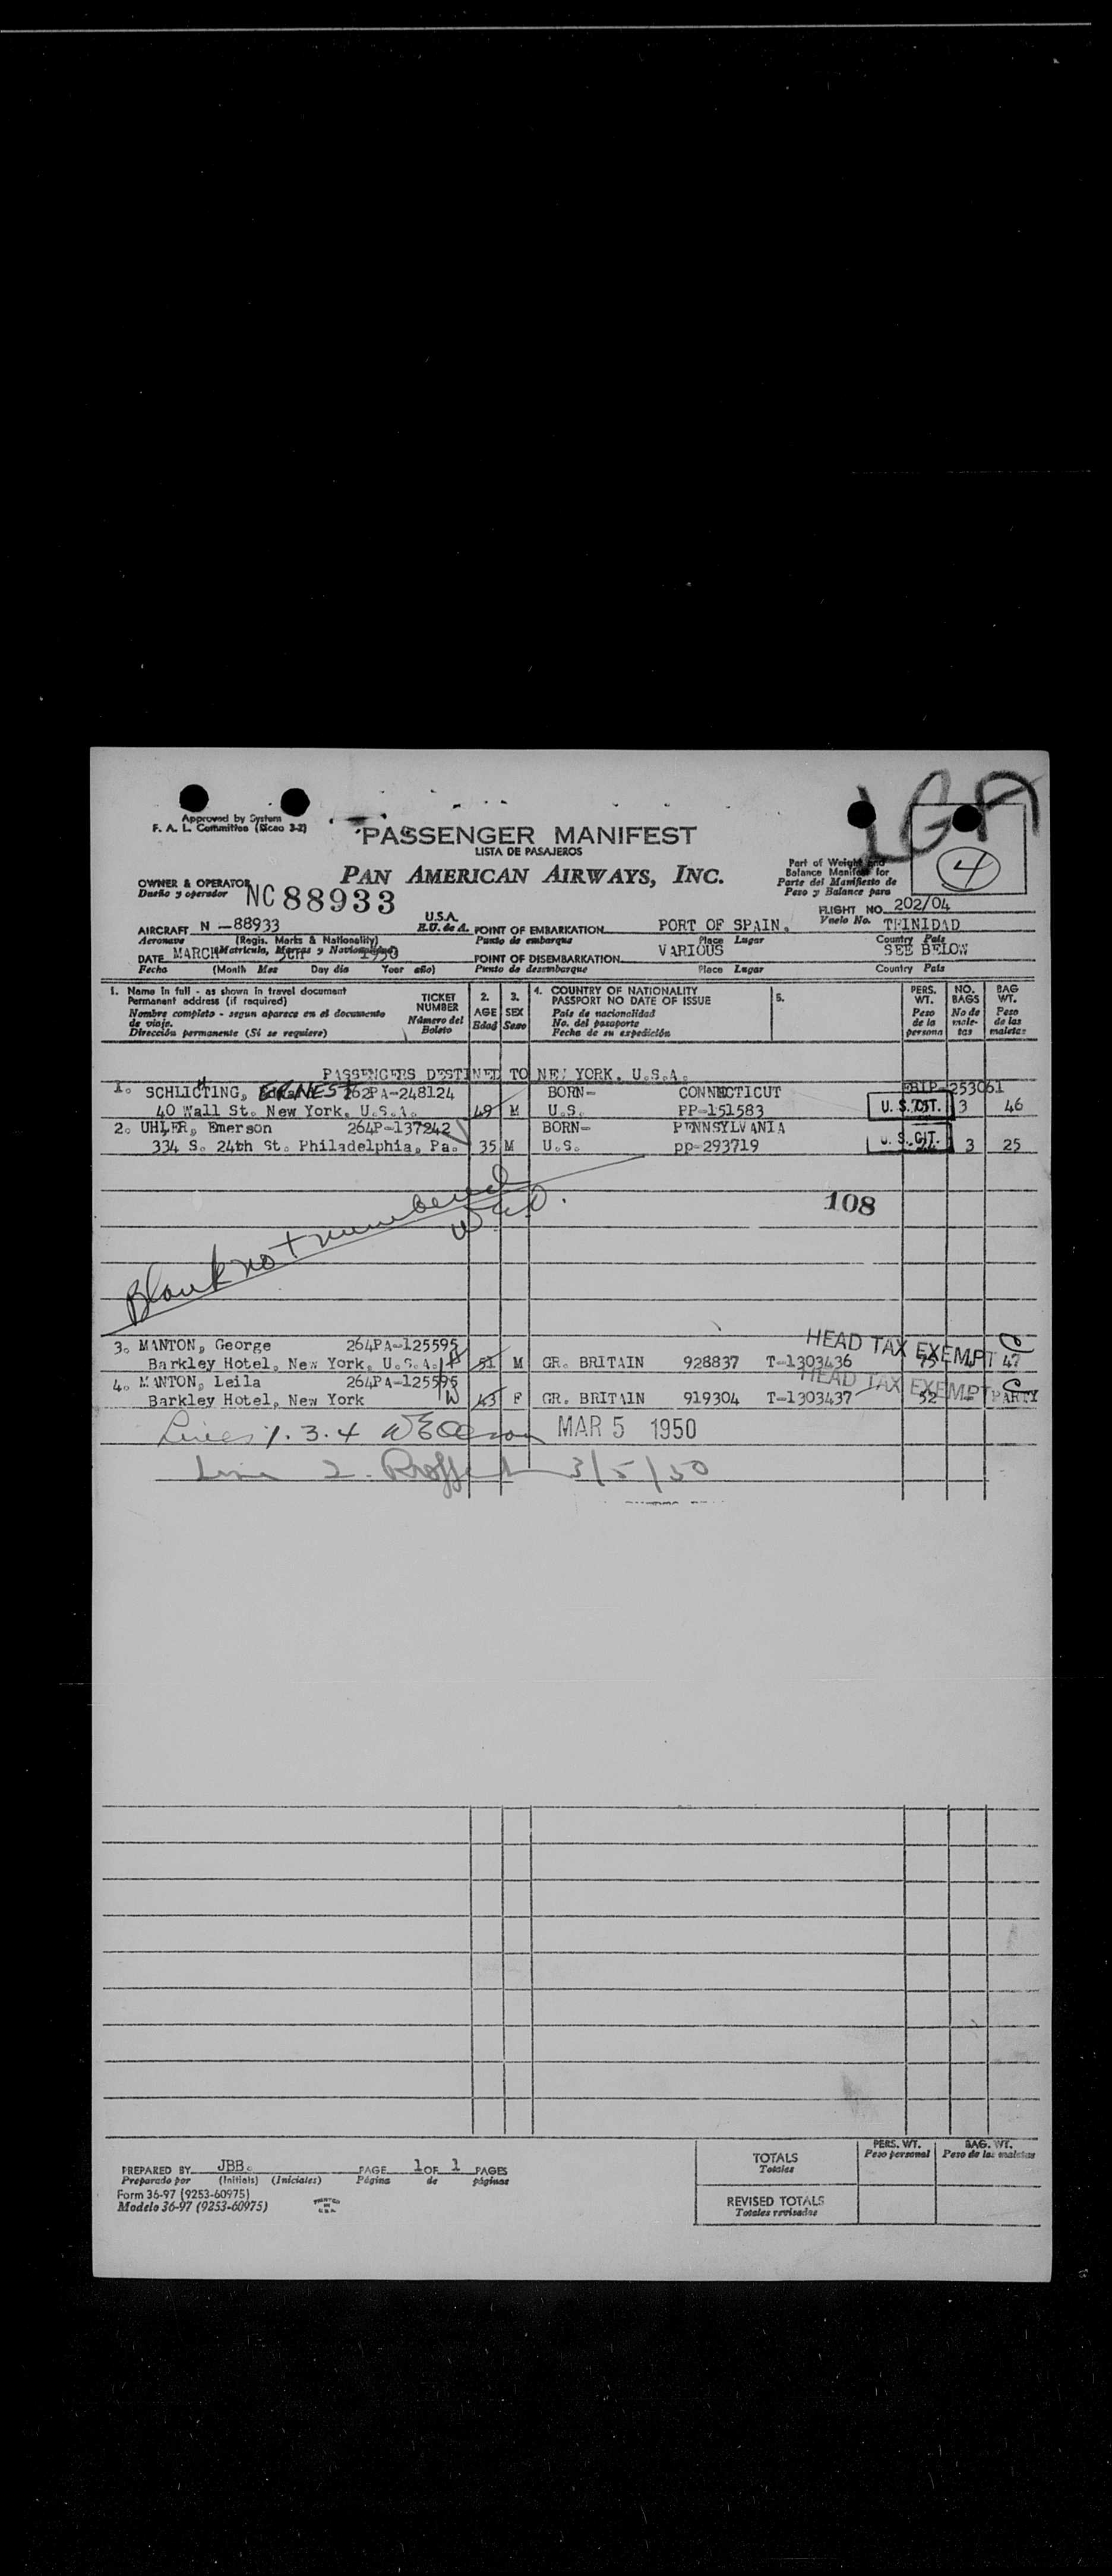 LGA
Approved by System
F. A. L. Committee (Dicao 3-2)
PASSENGER MANIFEST
LISTA DE PASAJEROS
PAN AMERICAN AIRWAYS, INC.
Part of Weight and
Balance Manifest for
Parte del Manifiesto de
Peso y Balance para
4
OWNER & OPERATOR NC 88933
Dueño y operador
FLIGHT NO. 202/04
Vuelo No.
AIRCRAFT N -88933 U.S.A. POINT OF EMBARKATION PORT OF SPAIN, TRINIDAD
Aeronave (Regis. Marks & Nationality) E.U. de A. Punto de embarque Place Lugar Country País
Matricula, Marcas y Nacionalidad
DATE MARCH 5TH 1950 POINT OF DISEMBARKATION VARIOUS SEE BELOW
Fecha (Month Mes Day dia Year año) Punto de desembarque Place Lugar Country País
1. Name in full - as shown in travel document
Permanent address (if required)
Nombre completo - segun aparece en el documento
de viaje.
Dirección permanente (Si se requiere)
TICKET
NUMBER
Número del
Boleto
2.
AGE
Edad
3.
SEX
Sexo
4. COUNTRY OF NATIONALITY
PASSPORT NO DATE OF ISSUE
País de nacionalidad
No. del pasaporte
Fecha de su expedición
5.
PERS.
WT.
Peso
de la
persona
NO.
BAGS
No de
male-
tas
BAG
WT.
Peso
de las
maletas
PASSENGERS DESTINED TO NEW YORK, U.S.A.
1. SCHLICHTING, ERNEST 262PA-248124 BORN- CONNECTICUT 253061
40 Wall St. New York, U.S.A. 49 M U.S. PP-151583 U. S. CIT. 3 46
2. UHLER, Emerson 264P-137242 BORN- PENNSYLVANIA
334 S. 24th St. Philadelphia, Pa. 35 M U.S. pp-293719 U. S. CIT. 3 25
108
Blank not numbered
3. MANTON, George 264PA-125595 HEAD TAX EXEMPT
Barkley Hotel, New York, U.S.A. H 51 M GR. BRITAIN 928837 T-1303436 75 4 47
4. MANTON, Leila 264PA-125595 HEAD TAX EXEMPT
Barkley Hotel, New York W 43 F GR. BRITAIN 919304 T-1303437 52 PARTY
Lines 1. 3. 4 MAR 5 1950
Line 2. 3/5/50
PREPARED BY JBB. PAGE 1 OF 1 PAGES
Preparado por (Initials) (Iniciales) Página de páginas
Form 36-97 (9253-60975)
Modelo 36-97 (9253-60975)
PRINTED
IN
U.S.A.
PERS. WT. BAG. WT.
Peso personal Peso de las maletas
TOTALS
Totales
REVISED TOTALS
Totales revisados